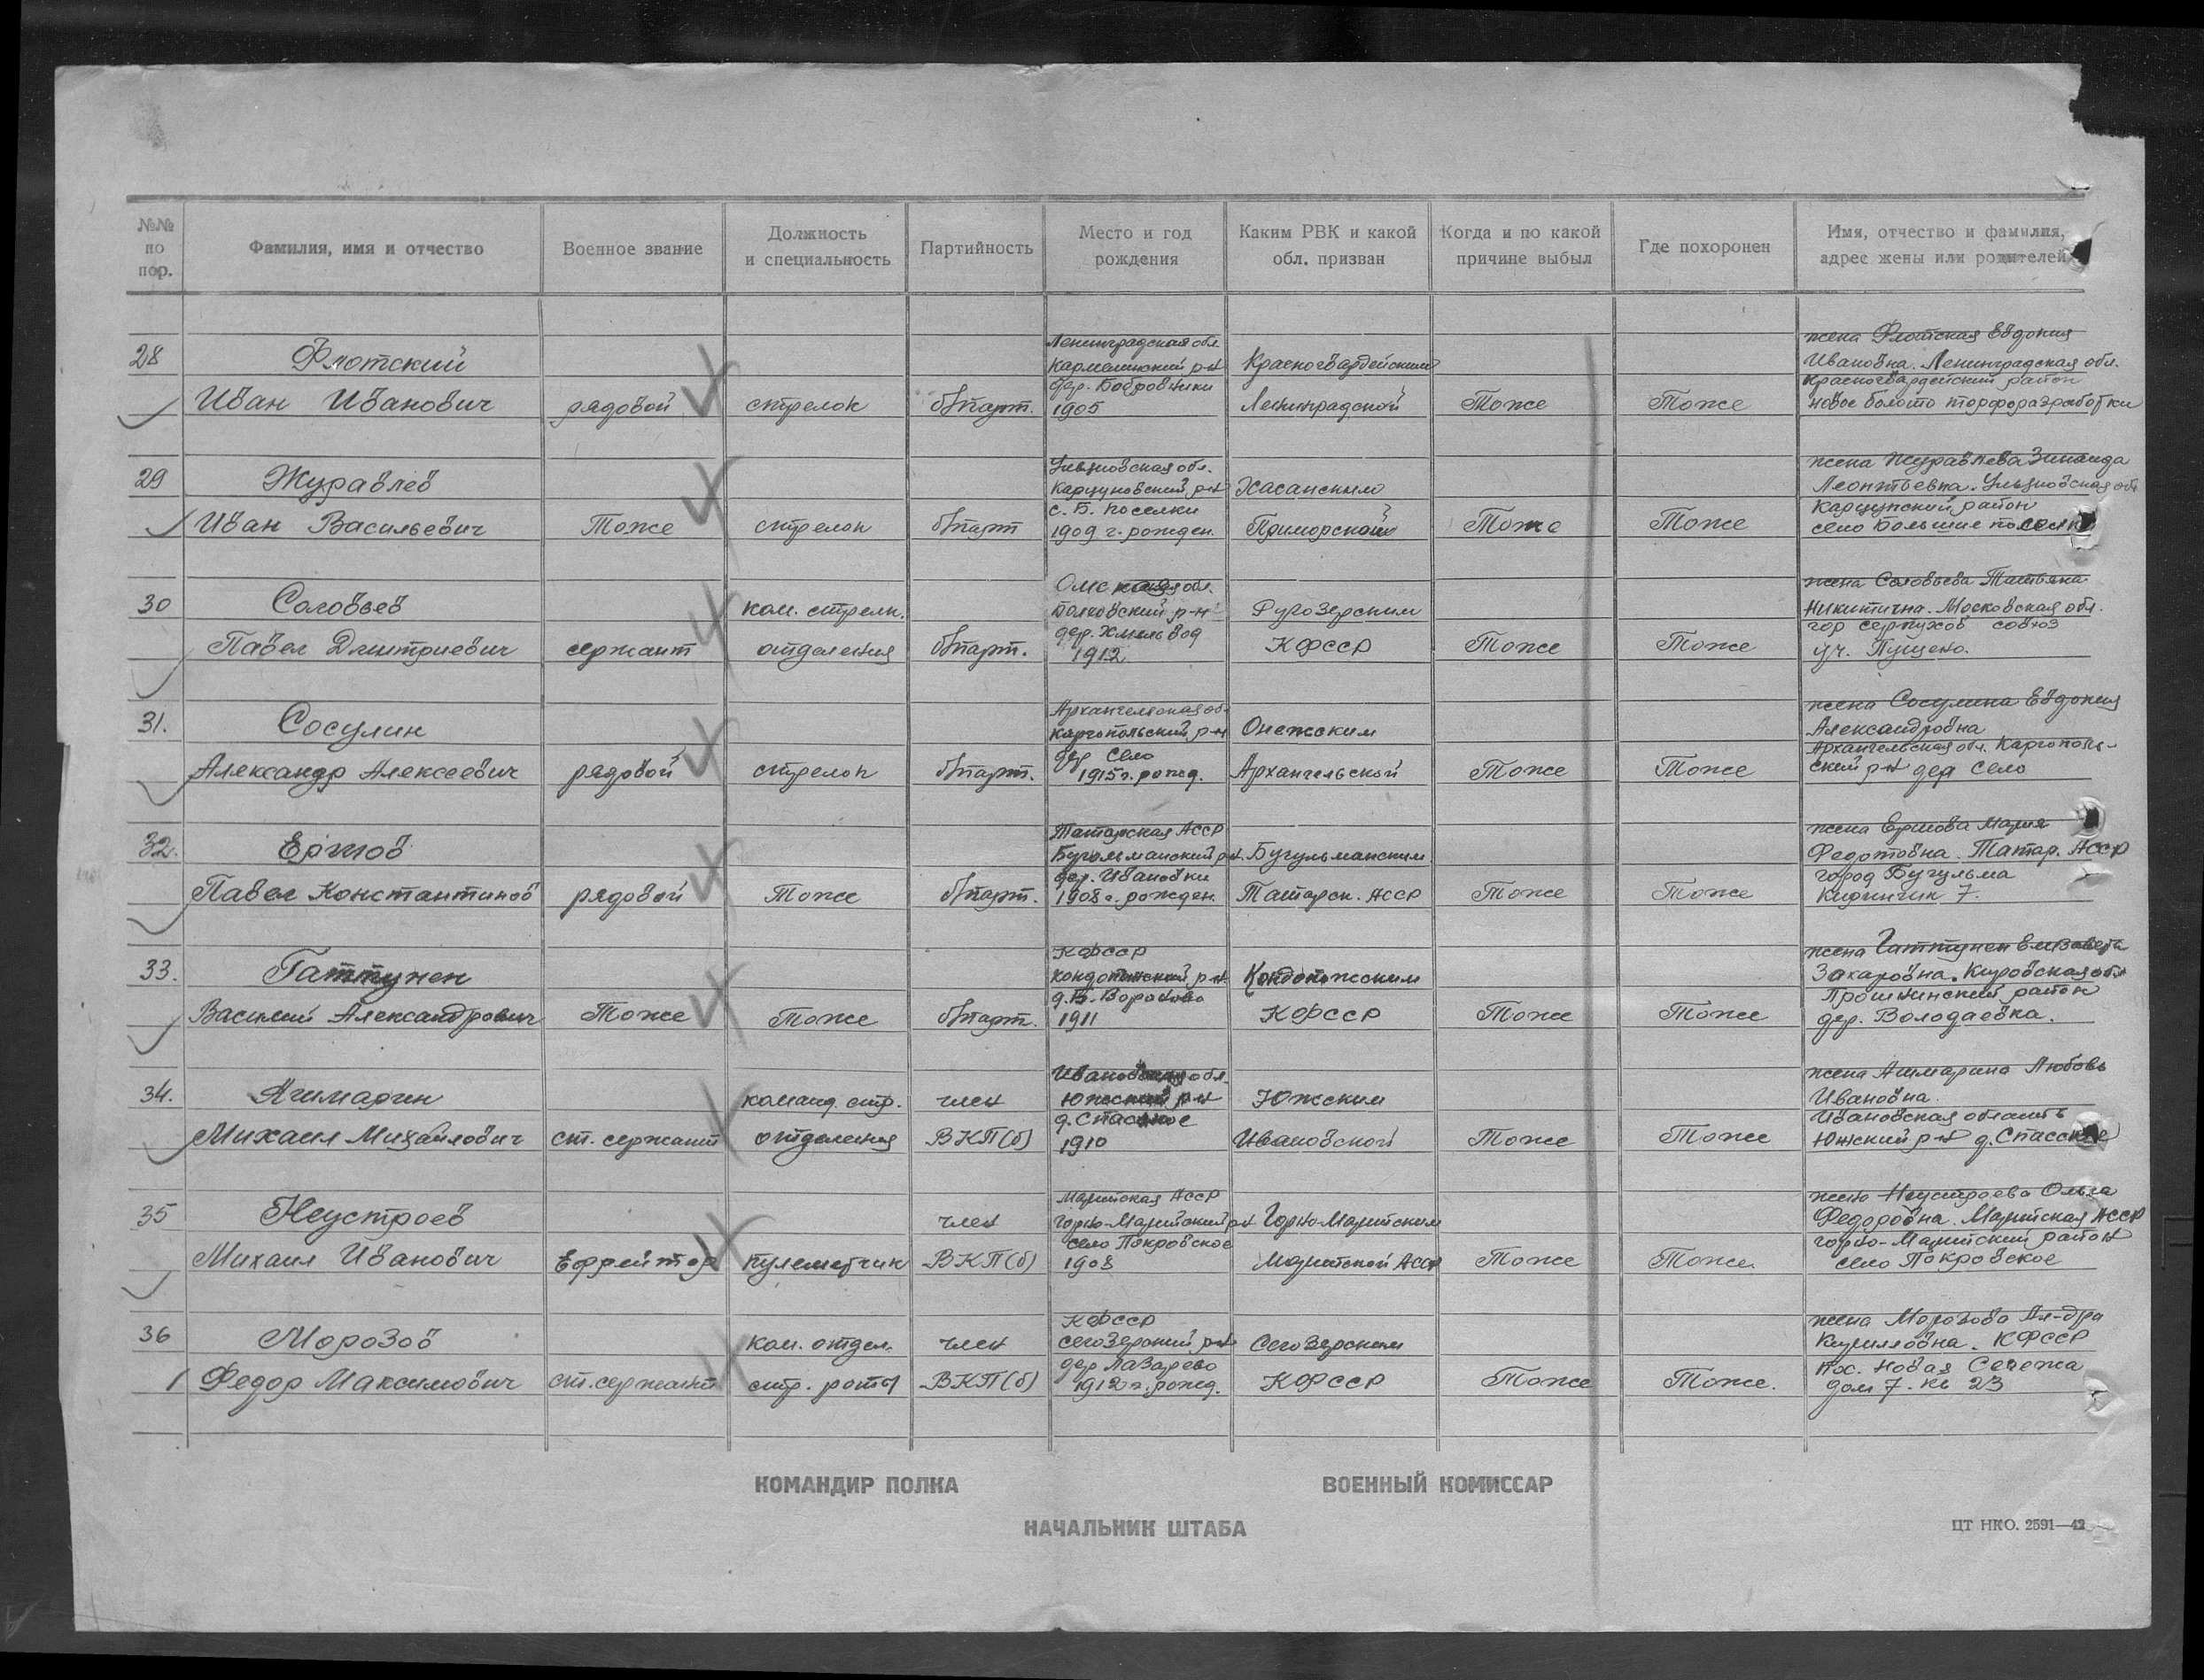 №№ по пор.
Фамилия, имя и отчество
Военное звание
Должность и специальность
Партийность
Место и год рождения
Каким РВК и какой обл. призван
Когда и по какой причине выбыл
Где похоронен
Имя, отчество и фамилия, адрес жены или родителей
28
Флотский
Иван Иванович
рядовой
стрелок
б/парт.
Ленинградская обл
р-н
дер. Бобровники
1905
Красногвардейским
Ленинградской
Тоже
Тоже
жена Флотская Евдокия
Ивановна. Ленинградская обл.
Красногвардейский район
новое болото торфоразработки
29
Журавлев
Иван Васильевич
Тоже
стрелок
б/парт
Ульяновская обл.
Карсуновский р-н
с. Б. Поселки
1909 г. рожден.
Хасанским
Приморской
Тоже
Тоже
жена Журавлева Зинаида
Леонтьевна. Ульяновская обл
Карсунский район
село Большие поселки
30
Соловьев
Павел Дмитриевич
сержант
ком. стрелк.
отделения
б/парт.
Омская обл.
р-н
дер.
1912
Ругозерским
КФССР
Тоже
Тоже
жена Соловьева Татьяна
Никитична. Московская обл.
гор серпухов совхоз
уч. Пущено.
31.
Сосулин
Александр Алексеевич
рядовой
стрелок
б/парт.
Архангельская об.
Каргопольский р-н
дер Село
1915 г. рожд.
Онежским
Архангельской
Тоже
Тоже
жена Сосулина Евдокия
Александровна
Архангельская обл. Каргополь-
ский р-н дер Село
32.
Ершов
Павел Константинов
рядовой
Тоже
б/парт.
Татарская АССР
Бугульманский р-н
дер. Ивановки
1908 г. рожден.
Бугульманским
Татарск. АССР
Тоже
Тоже
жена Ершова Мария
Федотовна. Татар. АССР
город Бугульма
7.
33.
Гаттунен
Василий Александрович
Тоже
Тоже
б/парт.
КФССР
кондопожский р-н
д. Б. Вороново
1911
Кондопожским
КФССР
Тоже
Тоже
жена Гаттунен Елизавета
Захаровна. Кировская обл
район
дер. Володаевка.
34.
Агимарин
Михаил Михайлович
ст. сержант
команд. стр.
отделения
член
ВКП(б)
Ивановская обл.
Южский р-н
д. Спасское
1910
Южским
Ивановской
Тоже
Тоже
жена Агимарина Любовь
Ивановна.
Ивановская область
Южский р-н д. Спасское
35
Неустроев
Михаил Иванович
Ефрейтор
пулеметчик
член
ВКП(б)
Марийская АССР
Горно-Марийский р-н
село Покровское
1908
Горно-Марийским
Марийской АССР
Тоже
Тоже.
жена Неустроева Ольга
Федоровна. Марийская АССР
горно-Марийский район
село Покровское
36
Морозов
Федор Максимович
ст. сержант
ком. отдел.
стр. роты
член
ВКП(б)
КФССР
сегозерский р-н
дер Лазарево
1912 г. рожд.
Сегозерским
КФССР
Тоже
Тоже.
жена Морозова Ал-дра
Кирилловна. КФССР
пос. Новая
дом 7. кв 23
КОМАНДИР ПОЛКА
ВОЕННЫЙ КОМИССАР
НАЧАЛЬНИК ШТАБА
ЦТ НКО. 2591—42